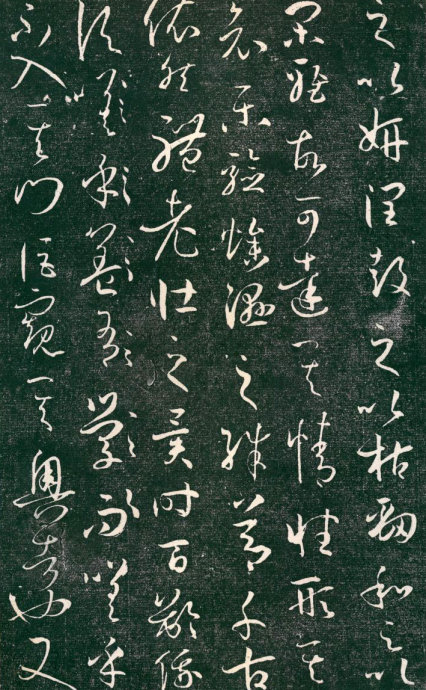 之以妍潤鼓之以枯勁和之以
閑雅故可達其情性形其
哀樂驗燥濕之殊節千古
依然體老壯之異時百齡俄
頃嗟乎
不入其門詎窺其奧者也又